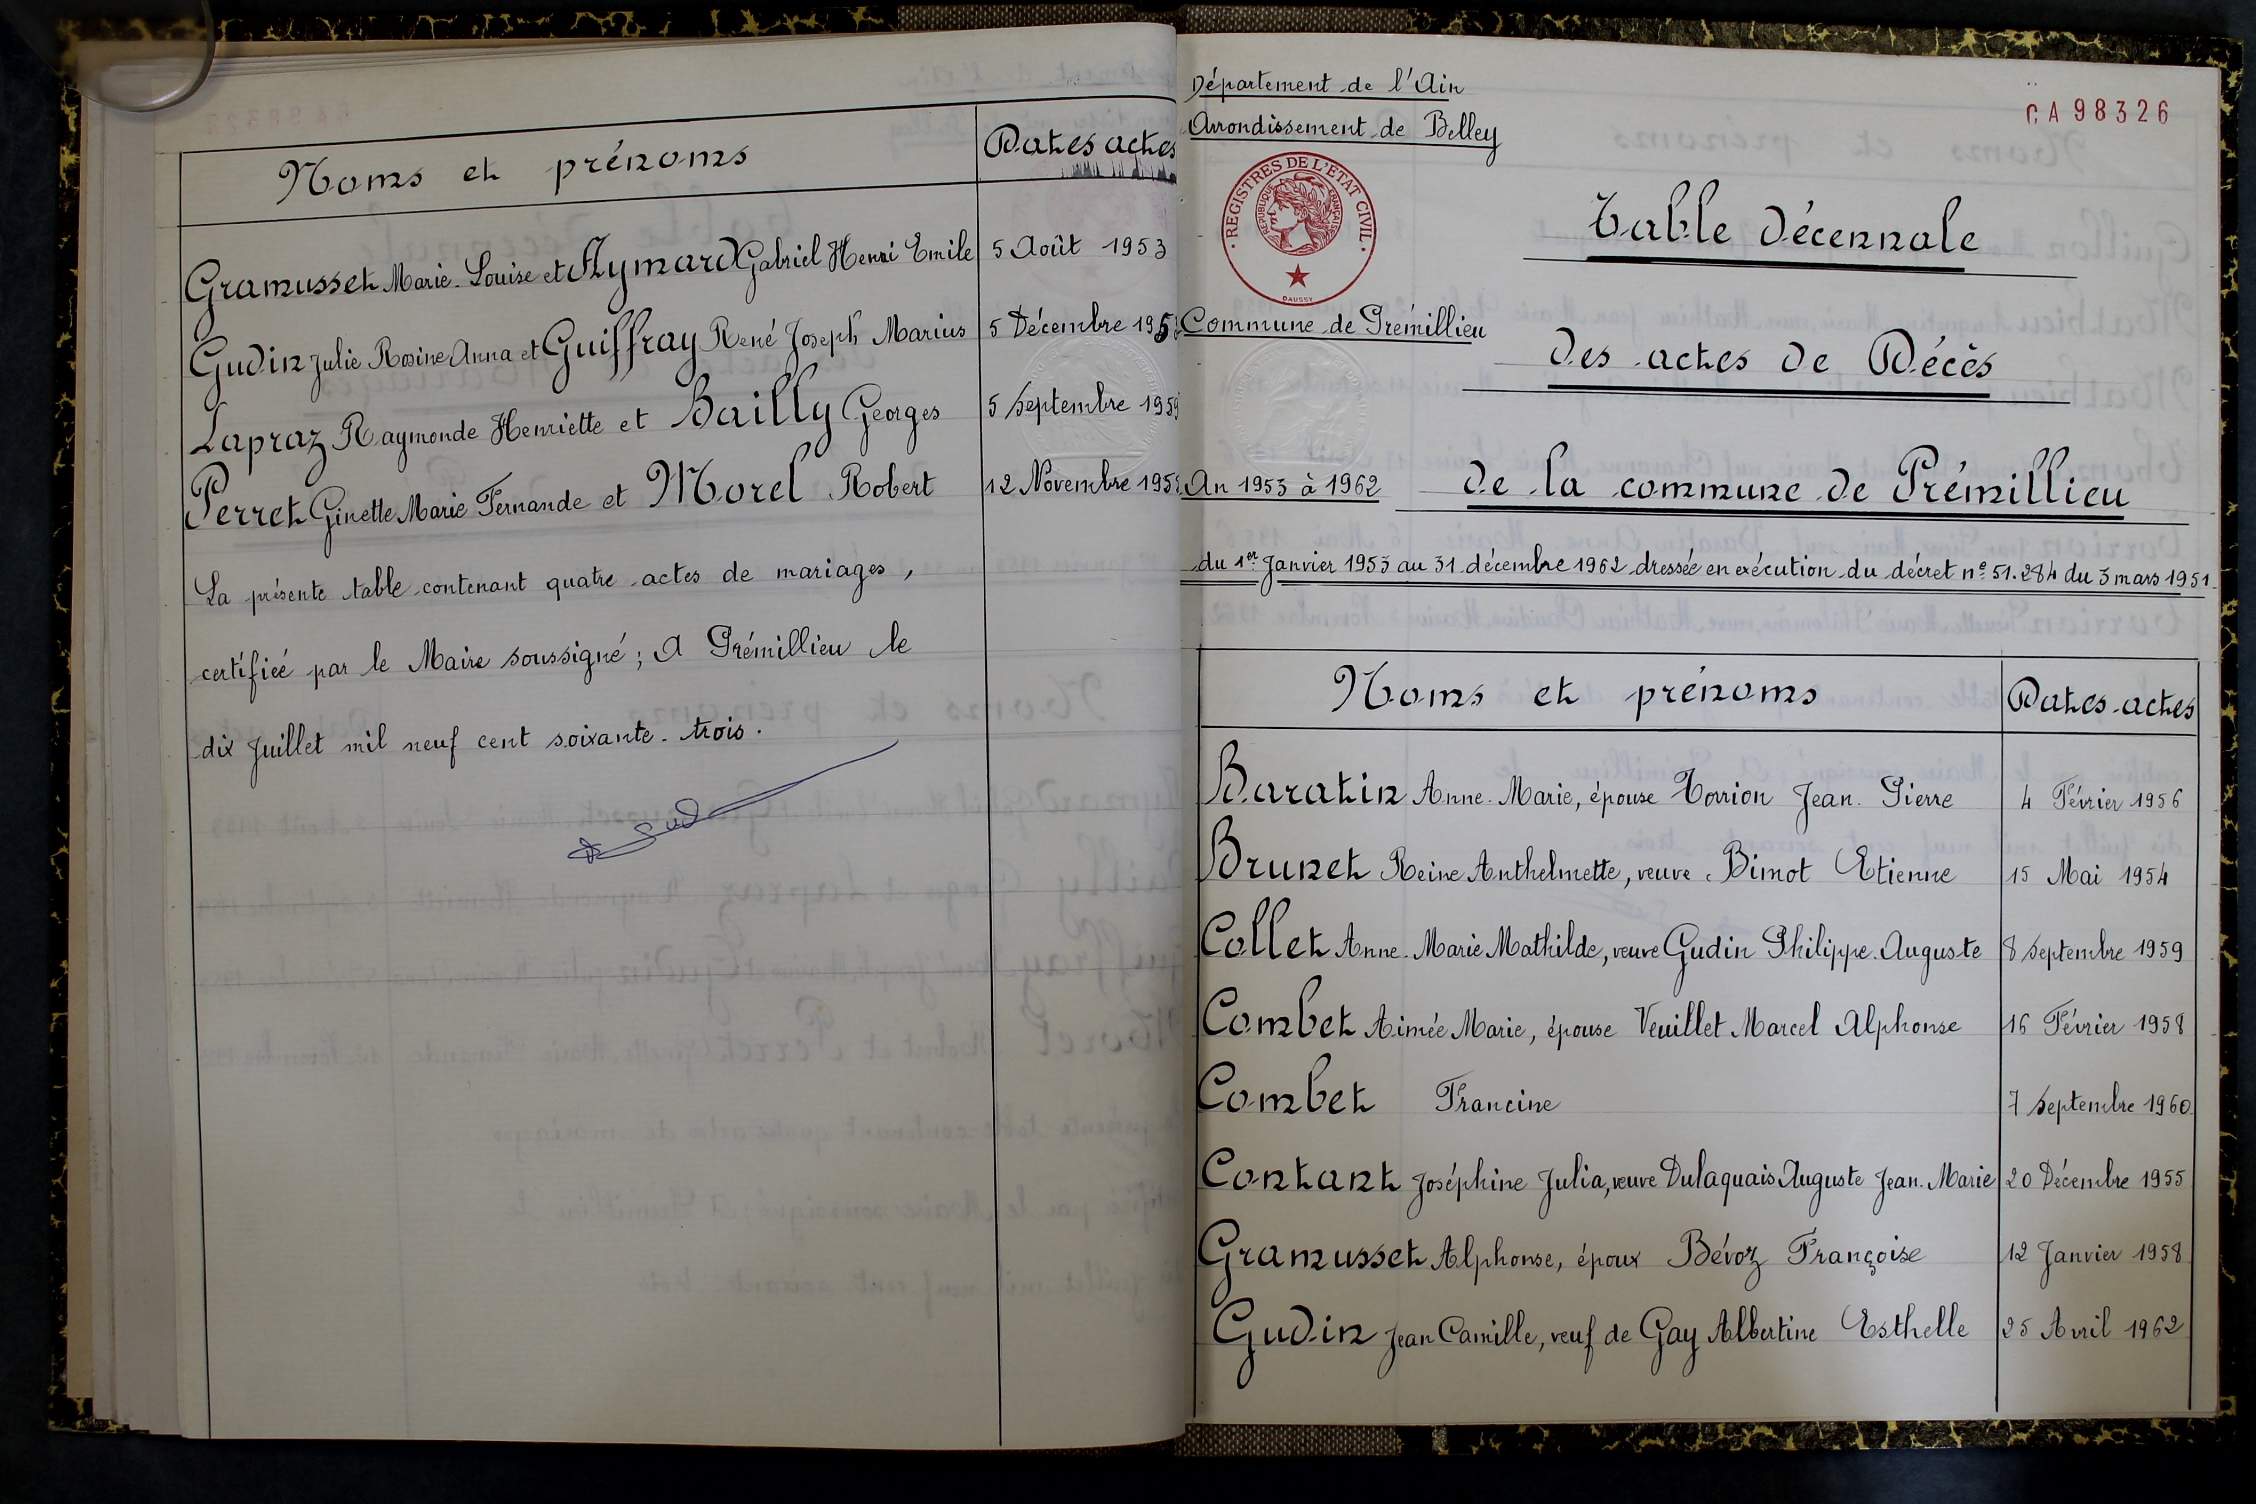 Noms et prénoms
Dates actes
Gramusset Marie-Louise et Aymard Gabriel Henri Emile
5 Août 1953
Gudin Julie Rosine Anna et Guiffray René Joseph Marius
5 Décembre 195
Lapraz Raymonde Henriette et Bailly Georges
5 Septembre 1959
Perret Ginette Marie Fernande et Morel Robert
12 Novembre 195
La présente table contenant quatre actes de mariages,
certifiée par le Maire soussigné; A Prémillieu le
dix Juillet mil neuf cent soixante-trois.
Département de l'Ain
Arrondissement de Belley
CA 98326
REGISTRES DE L'ETAT CIVIL
REPUBLIQUE FRANÇAISE
DAUSSY
Table Décennale
Commune de Prémillieu
des actes de Décès
An 1953 à 1962
de la commune de Prémillieu
du 1er Janvier 1953 au 31 décembre 1962 dressée en exécution du décret n° 51.284 du 3 mars 1951
Noms et prénoms
Dates actes
Baratin Anne-Marie, épouse Torrion Jean-Pierre
4 Février 1956
Brunet Reine Anthelmette, veuve Bimot Etienne
15 Mai 1954
Collet Anne-Marie Mathilde, veuve Gudin Philippe-Auguste
8 Septembre 1959
Combet Aimée Marie, épouse Veuillet Marcel Alphonse
16 Février 1958
Combet Francine
7 Septembre 1960
Contant Joséphine Julia, veuve Dulaquais Auguste Jean-Marie
20 Décembre 1955
Gramusset Alphonse, époux Bévoz Françoise
12 Janvier 1958
Gudin Jean Camille, veuf de Gay Albertine Esthelle
25 Avril 1962